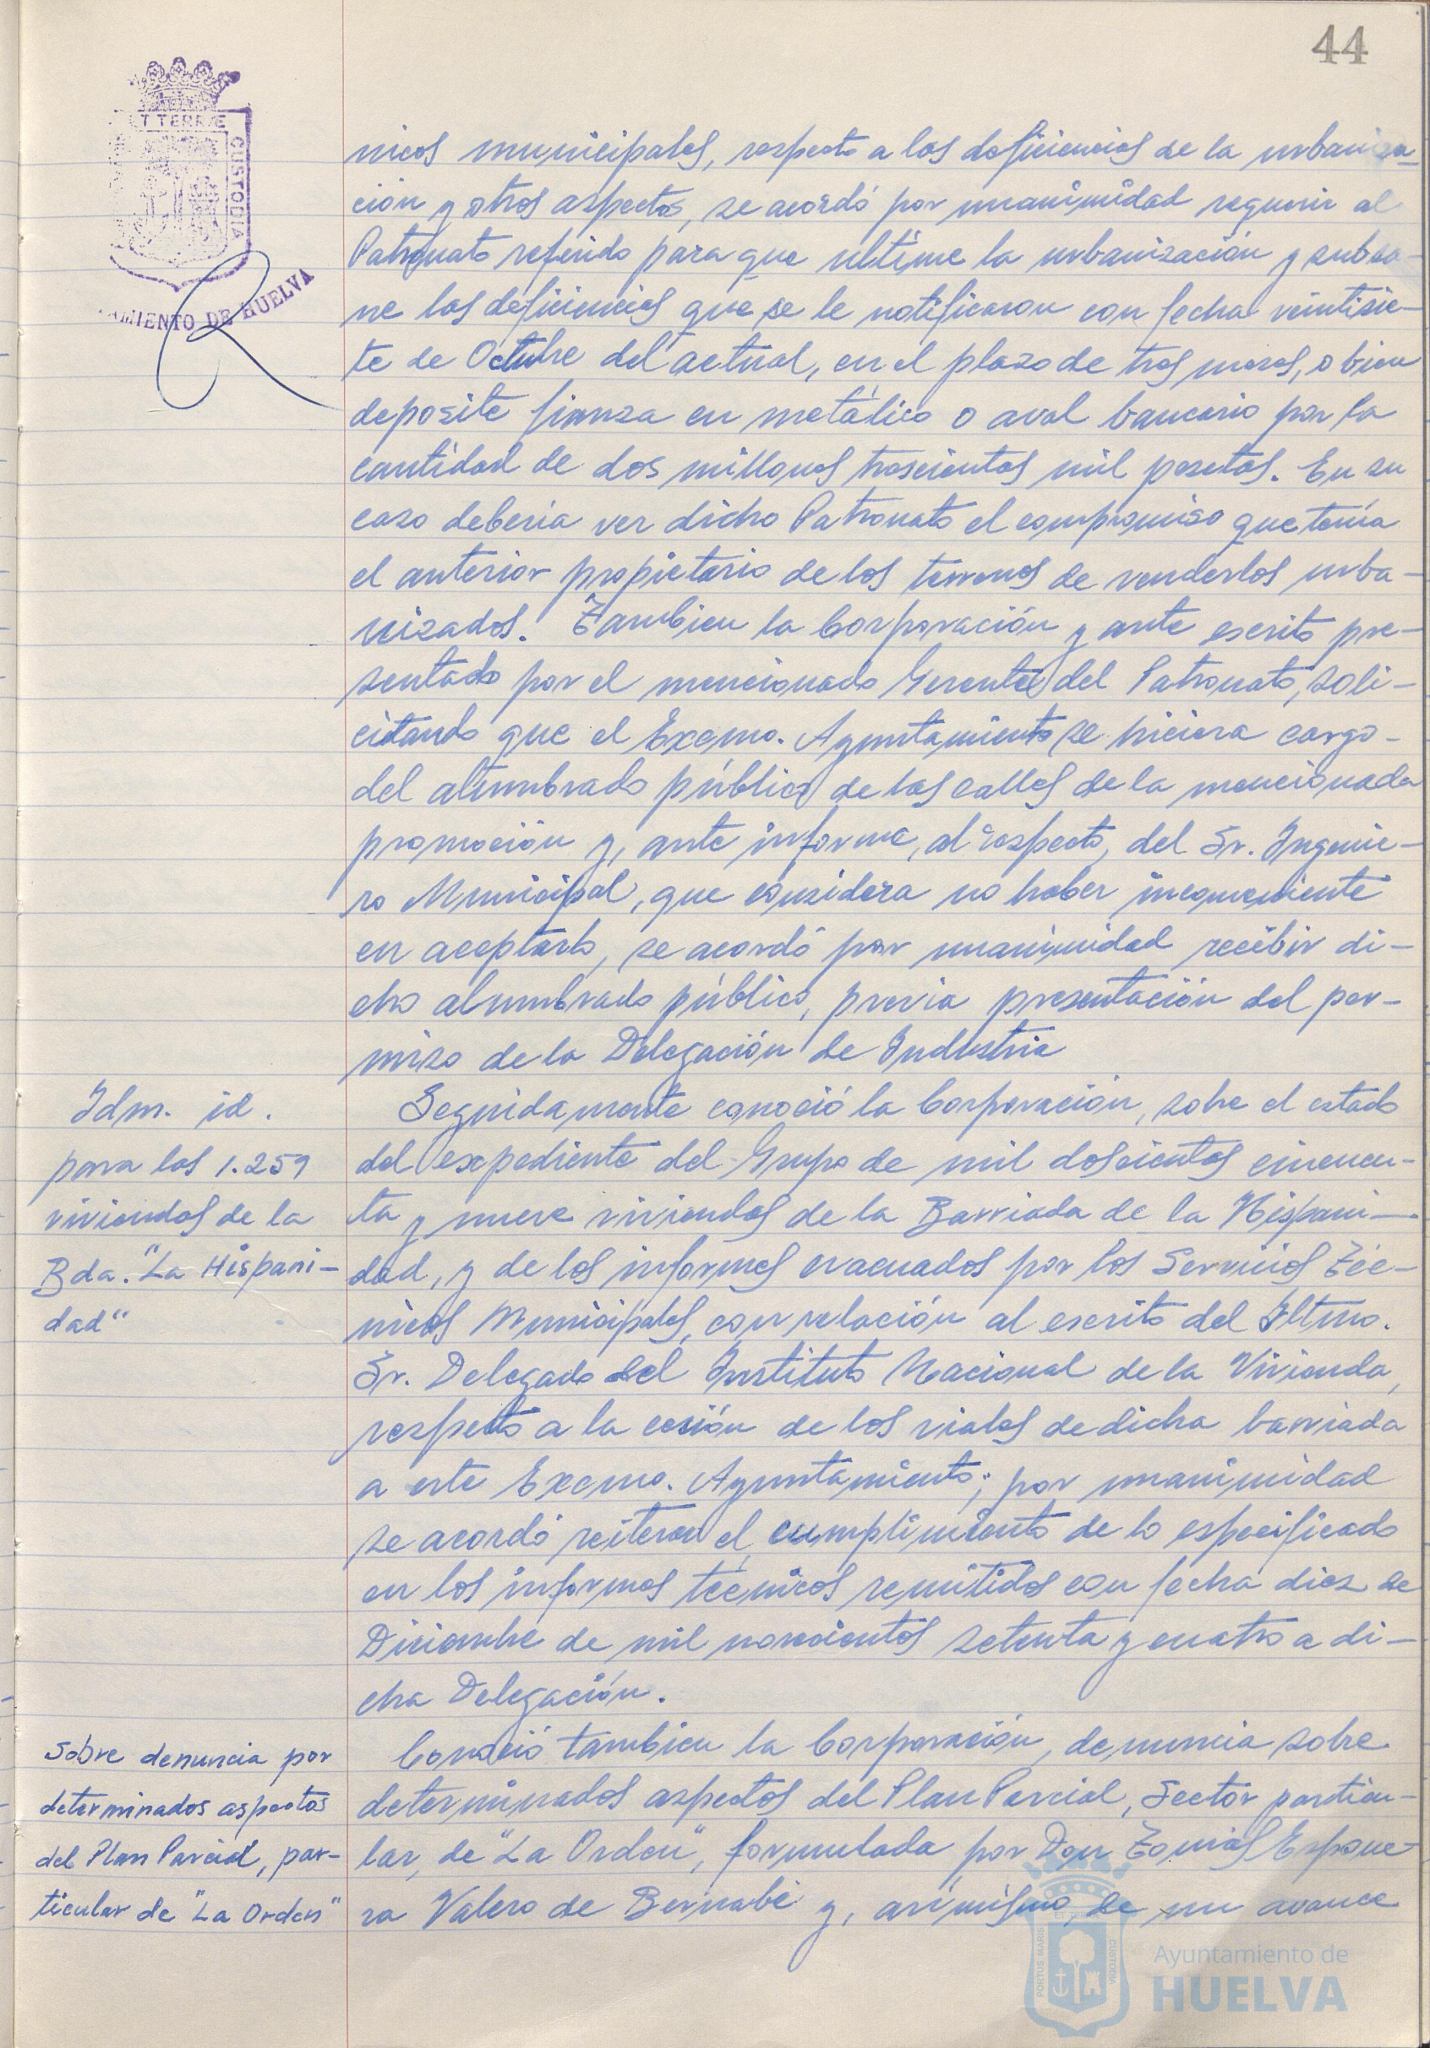 44
ET TERRÆ
CUSTODIA
AMIENTO DE HUELVA
nicos municipales, respecto a las deficiencias de la urbaniza-
ción y otros aspectos, se acordó por unanimidad requerir al
Patronato referido para que ultime la urbanización y subsa-
ne las deficiencias que se le notificaron con fecha veintisie-
te de Octubre del actual, en el plazo de tres meses, o bien
deposite fianza en metálico o aval bancario por la
cantidad de dos millones trescientas mil pesetas. En su
caso deberia ver dicho Patronato el compromiso que tenía
el anterior propietario de los terrenos de venderlos urba-
nizados. Tambien la Corporación y ante escrito pre-
sentado por el mencionado Gerente del Patronato, soli-
citando que el Excmo. Ayuntamiento se hiciera cargo-
del alumbrado público de las calles de la mencionada
promoción y, ante informe, al respecto, del Sr. Ingenie-
ro Municipal, que considera no haber inconveniente
en aceptarlo, se acordó por unanimidad recibir di-
cho alumbrado público, previa presentación del per-
miso de la Delegación de Industria
Idm. id.
para las 1.259
viviendas de la
Bda. "La Hispani-
dad"
Seguidamente conoció la Corporación, sobre el estado
del expediente del Grupo de mil doscientas cincuen-
ta y nueve viviendas de la Barriada de la Hispani-
dad, y de los informes evacuados por los Servicios Téc-
nicos Municipales, con relación al escrito del Iltmo.
Sr. Delegado del Instituto Nacional de la Vivienda,
respecto a la cesión de los viales de dicha barriada
a este Excmo. Ayuntamiento; por unanimidad
se acordó reiterar el cumplimiento de lo especificado
en los informes técnicos remitidos con fecha diez de
Diciembre de mil novecientos setenta y cuatro a di-
cha Delegación.
Sobre denuncia por
determinados aspectos
del Plan Parcial, par-
ticular de "La Orden"
Conoció tambien la Corporación, denuncia sobre
determinados aspectos del Plan Parcial, Sector particu-
lar, de "La Orden", formulada por Don Tomás Espone-
ra Valero de Bernabé y, asimismo, de un avance
PORTUS MARIS
CUSTODIA
Ayuntamiento de
HUELVA